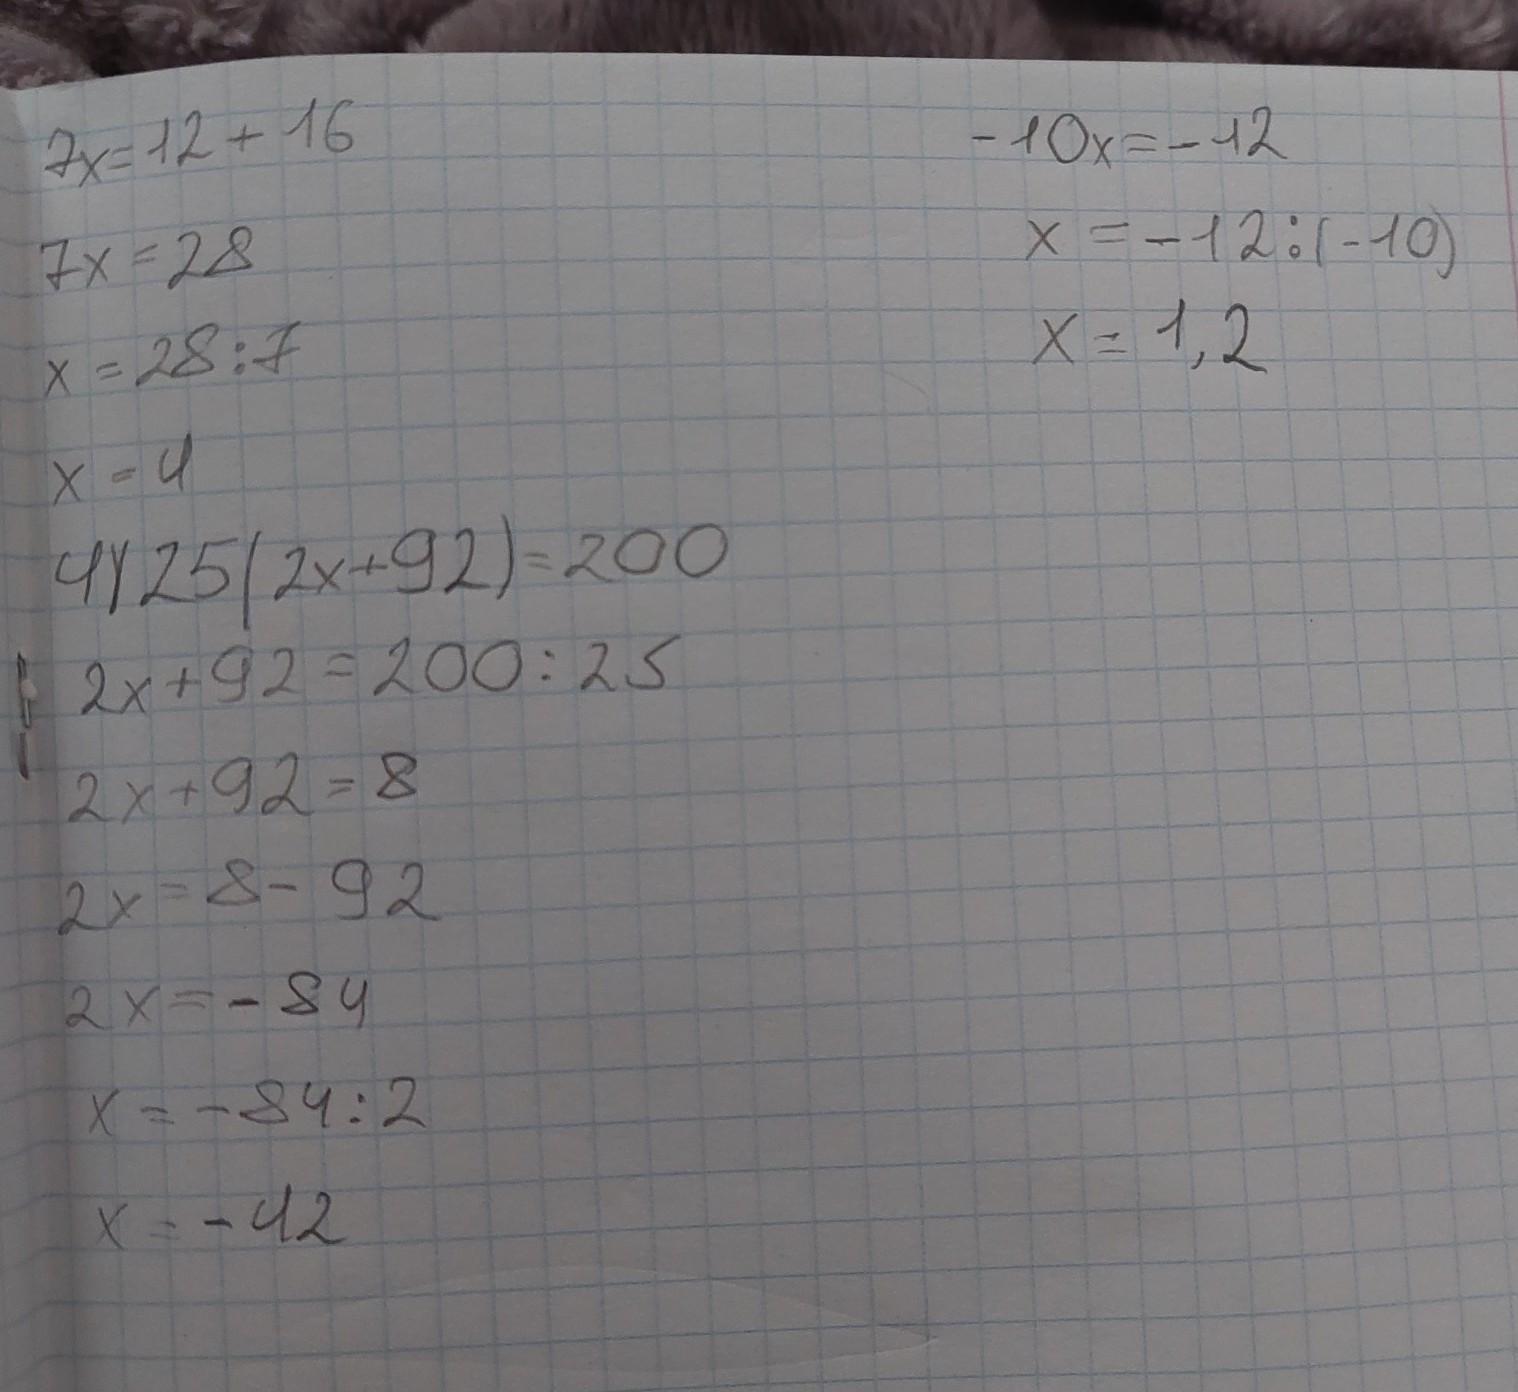 7x=12+16
7x=28
x=28:7
x=4
4) 25(2x+92)=200
2x+92=200:25
2x+92=8
2x=8-92
2x=-84
x=-84:2
x=-42
-10x=-12
x=-12:(-10)
x=1,2